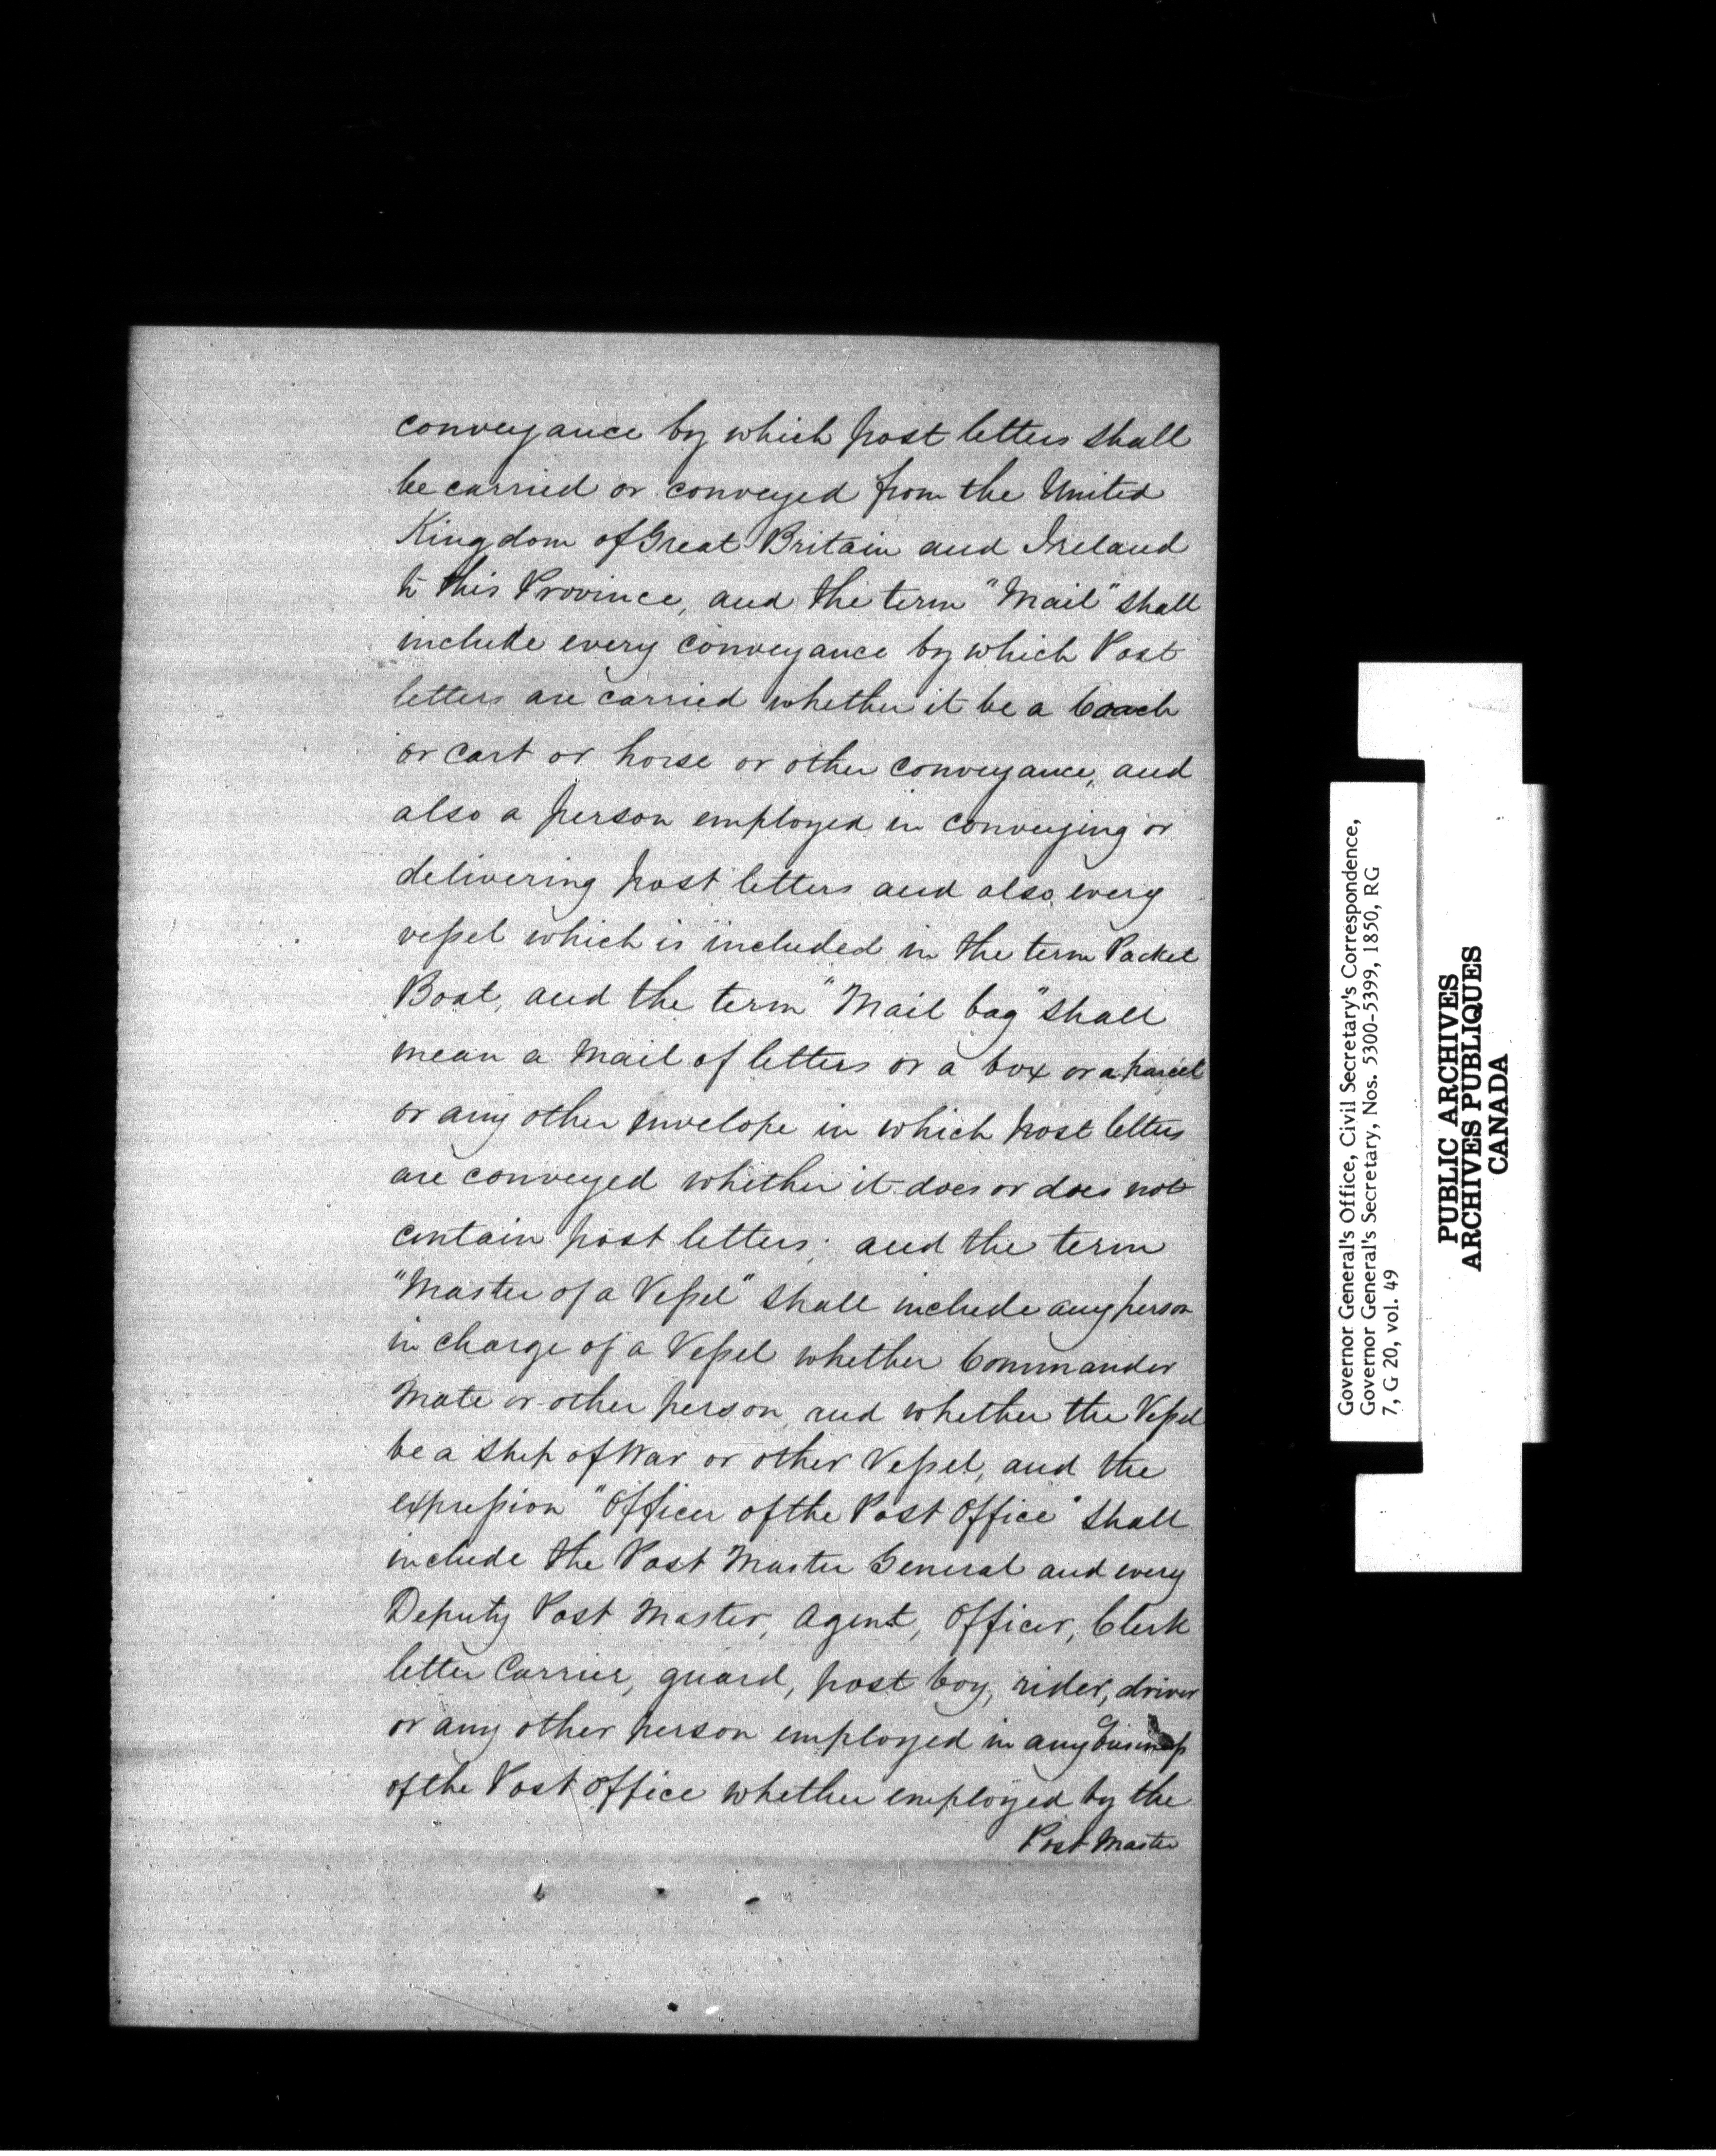 conveyance by which post letters shall
be carried or conveyed from the United
Kingdom of Great Britain and Ireland
to this Province, and the term "Mail" shall
include every conveyance by which Post
letters are carried whether it be a Coach
or cart or horse or other conveyance, and
also a person employed in conveying or
delivering post letters and also every
vessel which is included in the term Packet
Boat, and the term "Mail bag" shall
mean a Mail of letters or a box or a parcel
or any other envelope in which post letters
are conveyed whether it does or does not
contain post letters; and the term
"Master of a Vessel" shall include any person
in charge of a Vessel whether Commander
Mate or other person, and whether the Vessel
be a Ship of War or other Vessel, and the
expression "Officer of the Post Office" shall
include the Post Master General and every
Deputy Post Master, Agent, Officer, Clerk
letter Carrier, guard, post boy, rider, driver
or any other person employed in any business
of the Post Office whether employed by the
Post Master
Governor General's Office, Civil Secretary's Correspondence,
Governor General's Secretary, Nos. 5300-5399, 1850, RG
7, G 20, vol. 49
PUBLIC ARCHIVES
ARCHIVES PUBLIQUES
CANADA